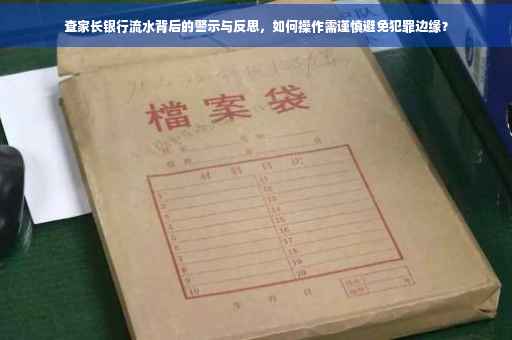 查家长银行流水背后的警示与反思,如何操作需谨慎避免犯罪边缘?
檔案袋
材料目次
1 11
2 12
3 13
4 14
5 15
6 16
7 17
8 18
9 19
10 20
年 月 日